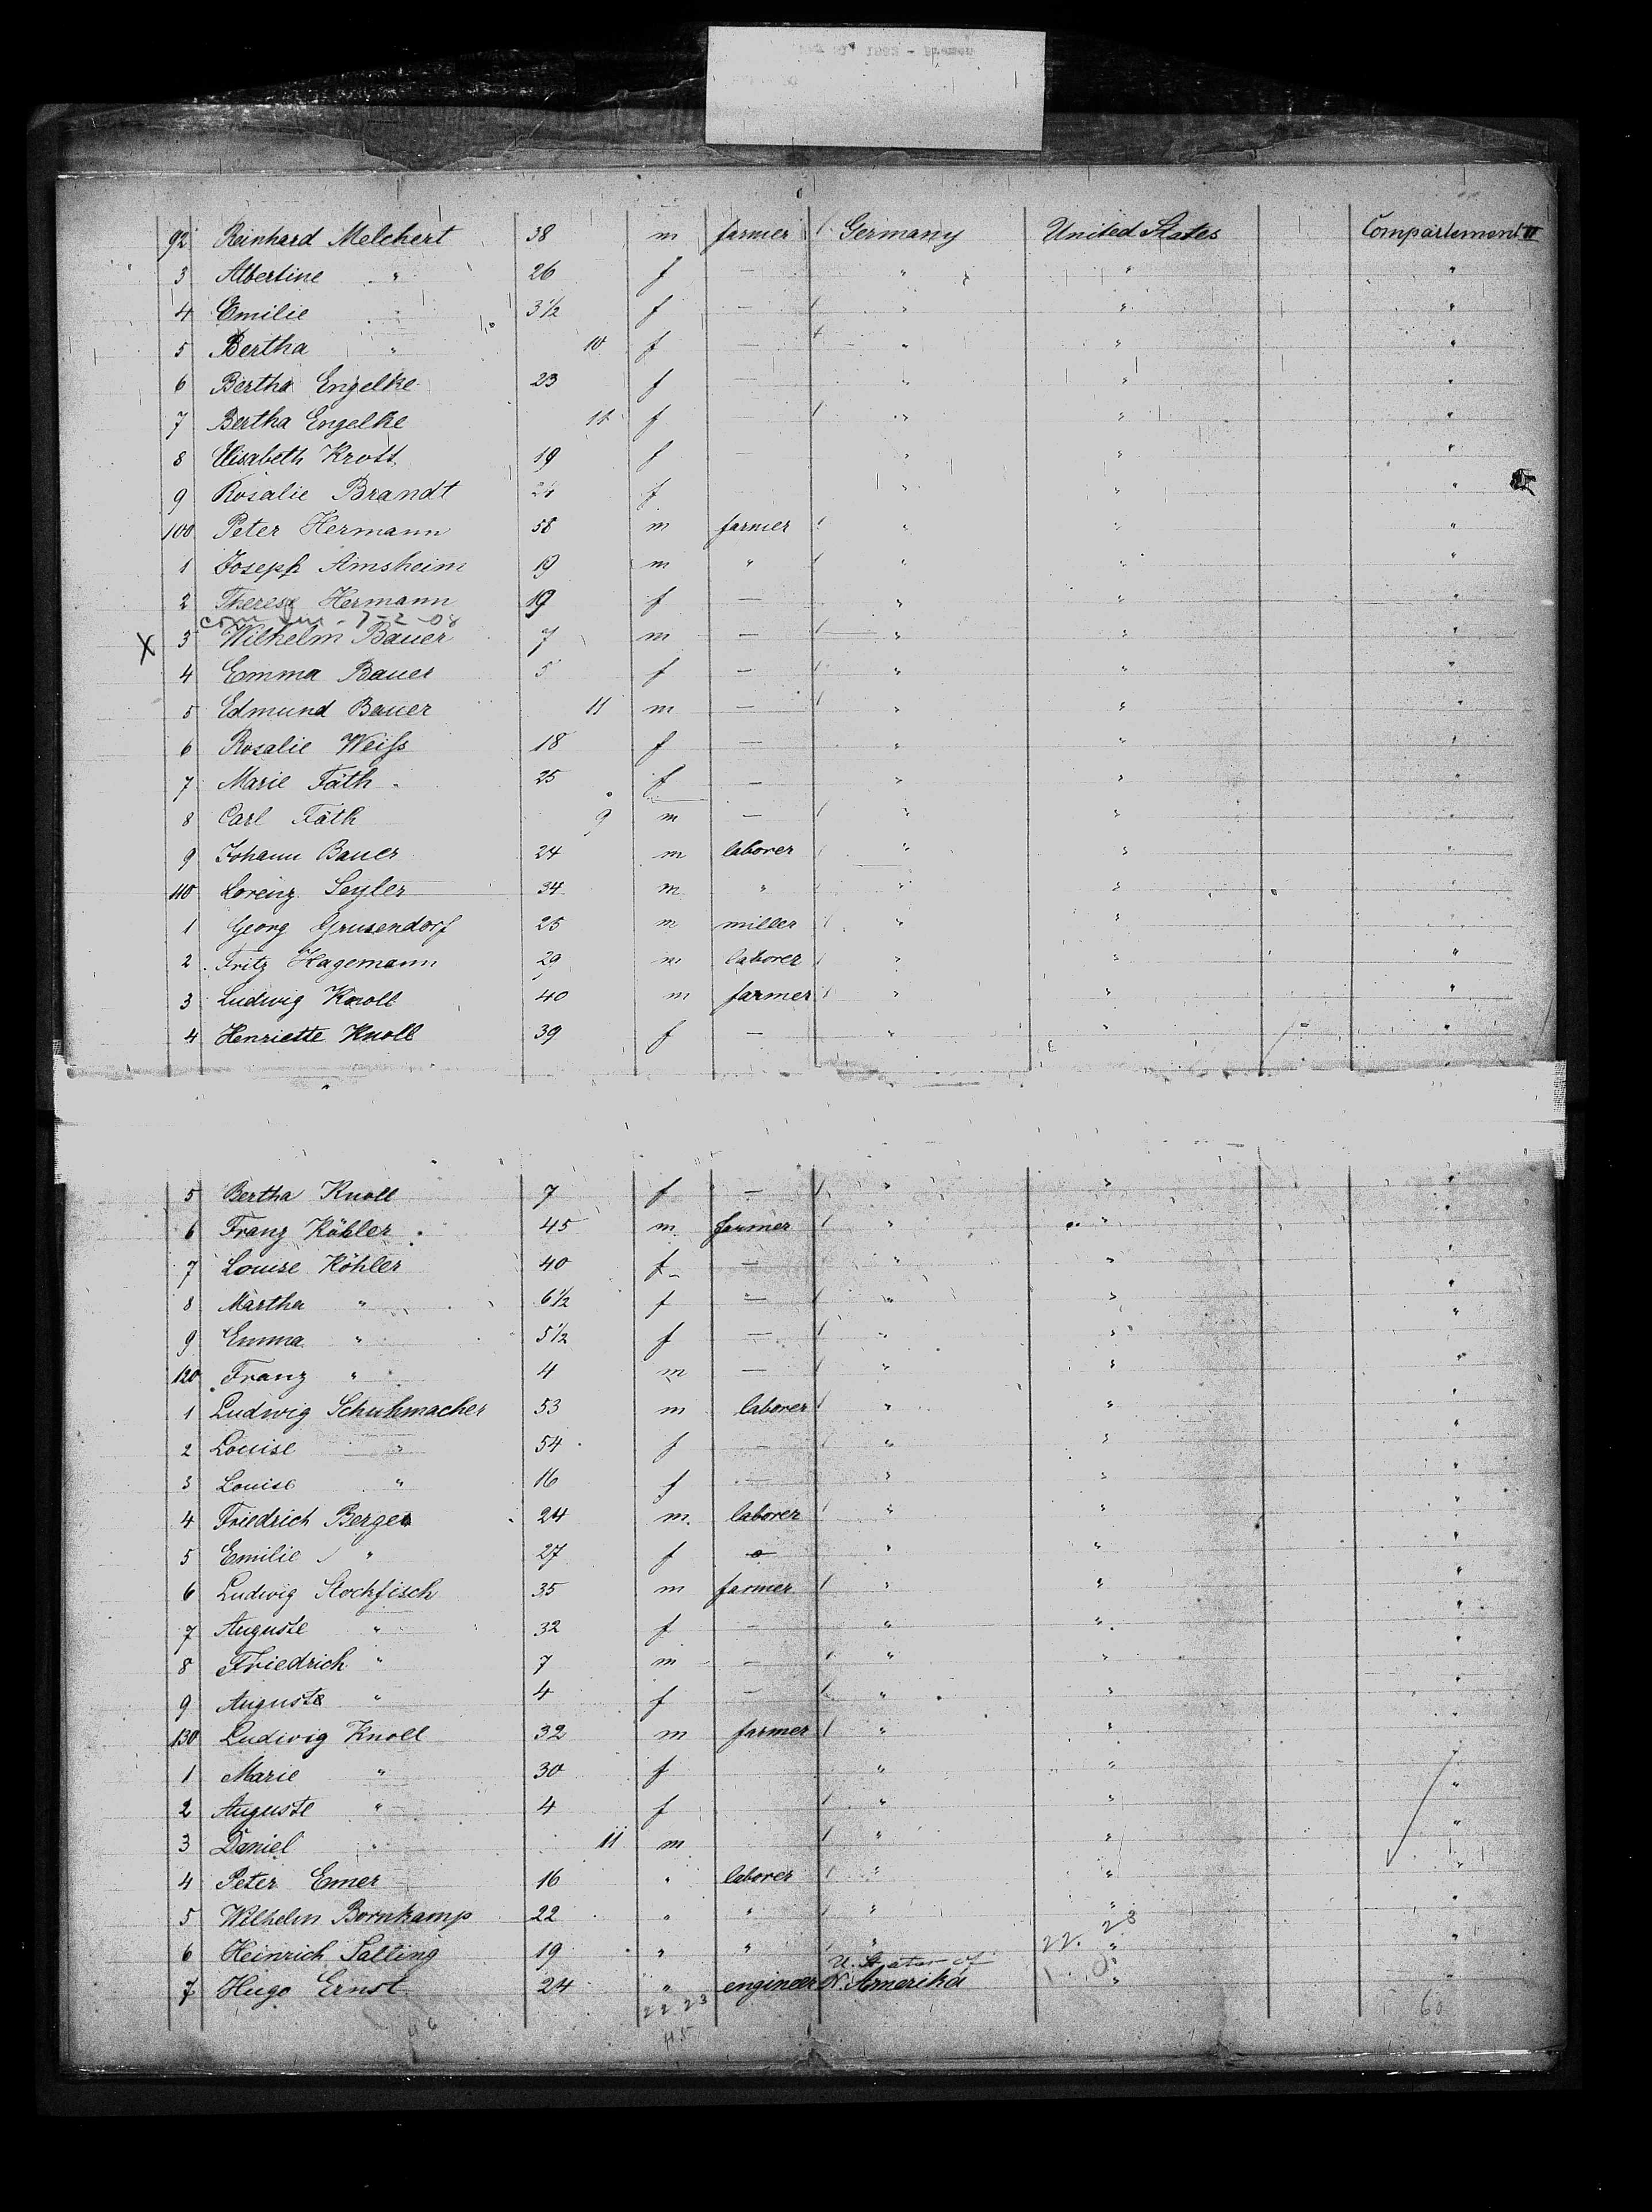 92 Reinhard Melchert 38 m farmer Germany United States Compartement II
3 Albertine " 26 f — " " "
4 Emilie " 3 1/2 f — " " "
5 Bertha " 10 f — " " "
6 Bertha Engelke 23 f — " " "
7 Bertha Engelke 11 f — " " "
8 Elisabeth Krott 19 f — " " "
9 Rosalie Brandt f " " "
100 Peter Hermann 58 m farmer " " "
1 Joseph Amsheim 19 m " " " "
2 Therese Hermann 19 f — " " "
7-2-08
X 3 Wilhelm Bauer 7 m — " " "
4 Emma Bauer 5 f — " " "
5 Edmund Bauer 11 m — " " "
6 Rosalie Weiſs 18 f — " " "
7 Marie Fäth 25 f — " " "
8 Carl Fäth 9 m — " " "
9 Johann Bauer 24 m laborer " " "
110 Lorenz Seyler 34 m " " " "
1 Georg Grusendorf 25 m miller " " "
2 Fritz Hagemann 29 m laborer " " "
3 Ludwig Knoll 40 m farmer " " "
4 Henriette Knoll 39 f — " " "
5 Bertha Knoll 7 f — " " "
6 Franz Köhler 45 m farmer " " "
7 Louise Köhler 40 f — " " "
8 Martha " 6 1/2 f — " " "
9 Emma " 5 1/2 f — " " "
120 Franz " 4 m — " " "
1 Ludwig Schuhmacher 53 m laborer " " "
2 Louise " 54 f — " " "
3 Louise " 16 f — " " "
4 Friedrich Berger 24 m laborer " " "
5 Emilie " 27 f — " " "
6 Ludwig Stockfisch 35 m farmer " " "
7 Auguste " 32 f — " " "
8 Friedrich " 7 m — " " "
9 Auguste " 4 f — " " "
130 Ludwig Knoll 32 m farmer " " "
1 Marie " 30 f " " "
2 Auguste " 4 f " " "
3 Daniel " 11 m " " "
4 Peter Emer 16 " laborer " " "
5 Wilhelm Bornkamp 22 " " " " "
6 Heinrich Salting 19 " " " " "
U. States of
7 Hugo Ernst 24 " engineer N. Amerika " "
22 23
60